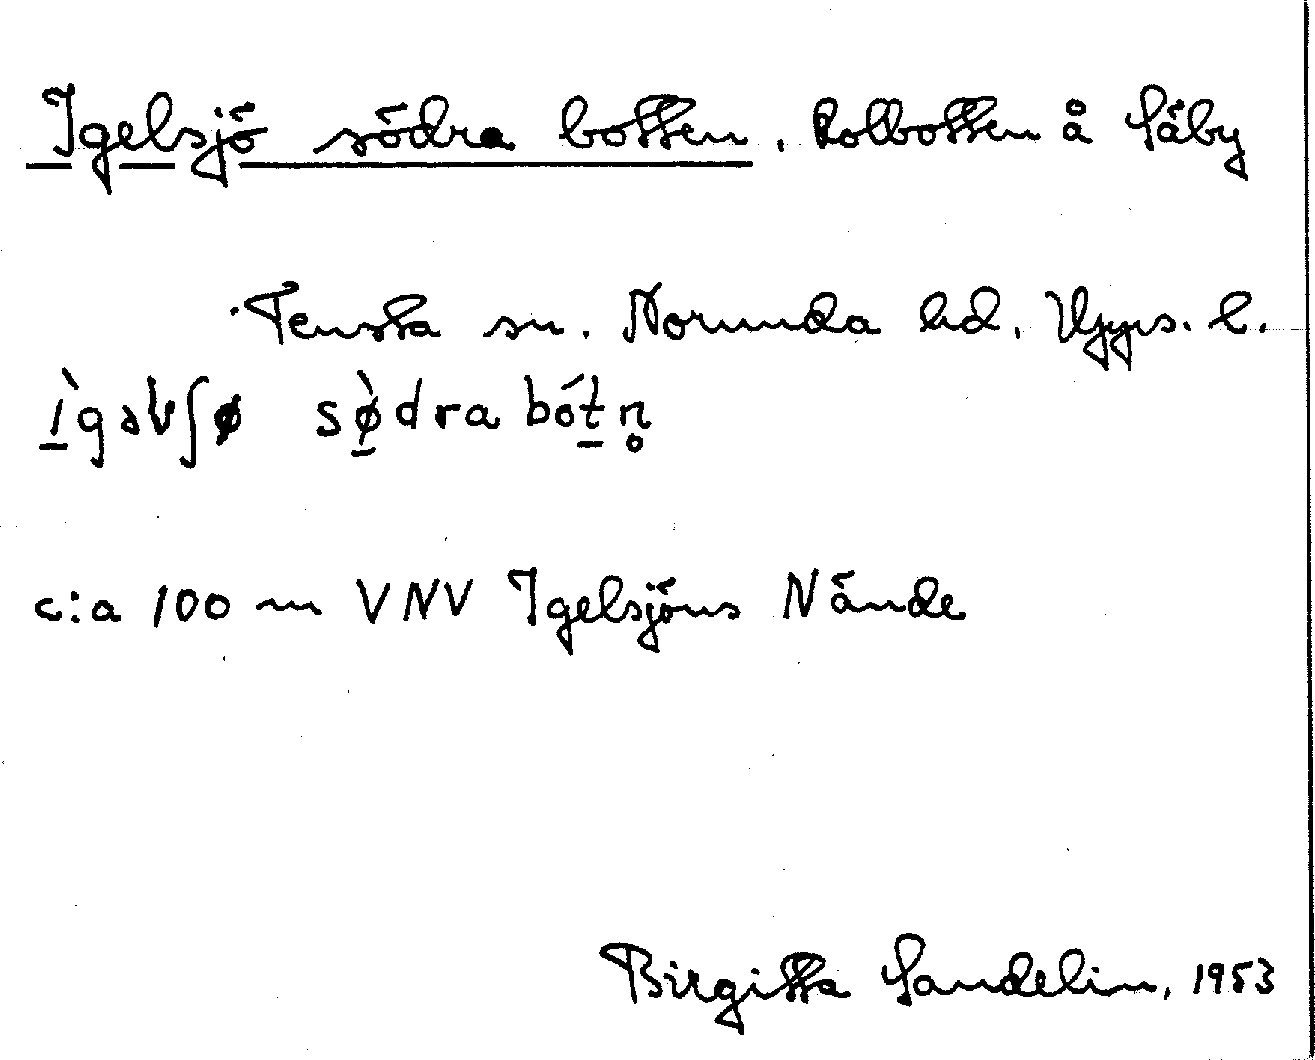 Igelsjö södra botten, Kolbotten å Säby
Tensta sn. Norunda hd. Upps. l.
ì̱gəlʃø sø̱̀dra bóṯn̥
c:a 100 m VNV Igelsjöns N ände
Birgitta Sandelin, 1953